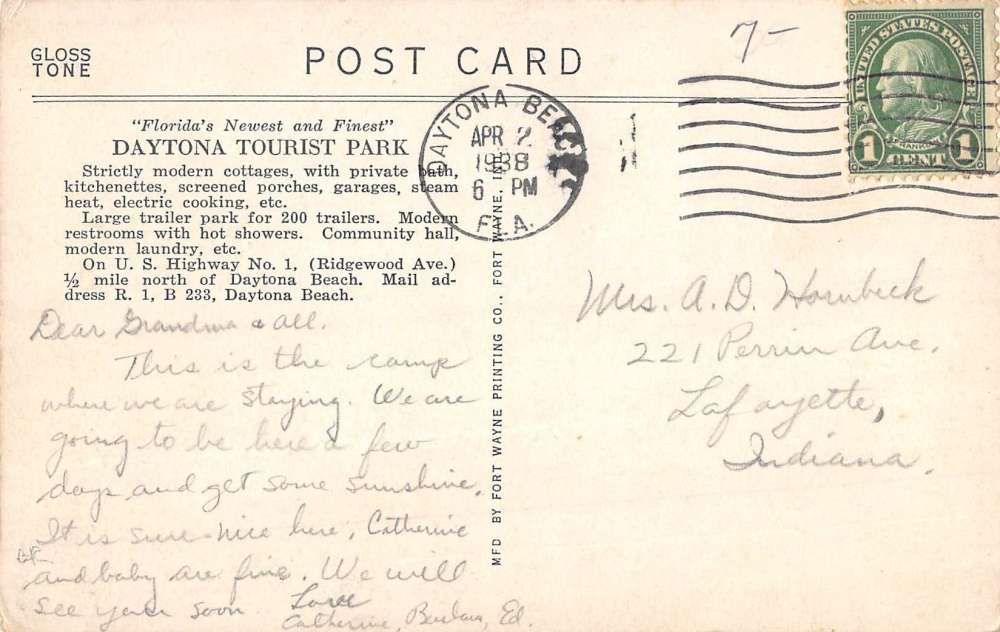 GLOSS
TONE
POST CARD
7-
UNITED STATES POSTAGE
FRANKLIN
1 CENT 1
DAYTONA BEACH
APR 2
1938
6 PM
FLA.
"Florida's Newest and Finest"
DAYTONA TOURIST PARK
Strictly modern cottages, with private bath,
kitchenettes, screened porches, garages, steam
heat, electric cooking, etc.
Large trailer park for 200 trailers. Modern
restrooms with hot showers. Community hall,
modern laundry, etc.
On U. S. Highway No. 1, (Ridgewood Ave.)
½ mile north of Daytona Beach. Mail ad-
dress R. 1, B 233, Daytona Beach.
Dear Grandma & all.
This is the camp
where we are staying. We are
going to be here a few
days and get some sunshine.
It is sure nice here, Catherine
and baby are fine. We will
see you soon. Love
Catherine, Barbara, Ed.
MFD BY FORT WAYNE PRINTING CO., FORT WAYNE, IND.
Mrs. A. D. Hornbeck
221 Perrin Ave.
LaFayette,
Indiana.